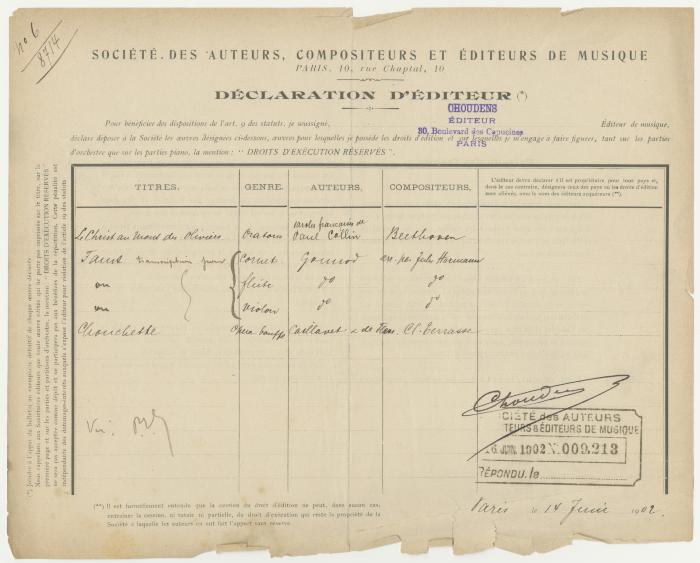 No 6
8714
SOCIÉTÉ DES AUTEURS, COMPOSITEURS ET ÉDITEURS DE MUSIQUE
PARIS, 10, rue Chaptal, 10
DÉCLARATION D'ÉDITEUR (*)
CHOUDENS
ÉDITEUR
30, Boulevard des Capucines
PARIS
Pour bénéficier des dispositions de l'art. 9 des statuts, je soussigné, Éditeur de musique,
déclare déposer à la Société les œuvres désignées ci-dessous, œuvres pour lesquelles je possède les droits d'édition et sur lesquelles je m'engage à faire figurer, tant sur les parties
d'orchestre que sur les parties piano, la mention : " DROITS D'EXÉCUTION RÉSERVÉS ".
TITRES. GENRE. AUTEURS. COMPOSITEURS.
L'éditeur devra déclarer s'il est propriétaire pour tous pays et,
dans le cas contraire, désignera ceux des pays où les droits d'édition
sont aliénés, avec le nom des éditeurs acquéreurs (**).
paroles françaises de
Le Christ au Mont des Oliviers Oratorio Paul Collin Beethoven
Faust transcription pour cornet Gounod arr. par Jules Hermann
ou flûte do do
ou violon do do
Chonchette Opéra bouffe Caillavet & de Flers Cl. Terrasse
Choudens
CIÉTÉ des AUTEURS
TEURS & ÉDITEURS DE MUSIQUE
16 JUIN 1902 N. 009.213
RÉPONDU, le
Vu:
(**) Il est formellement entendu que la cession du droit d'édition ne peut, dans aucun cas,
entraîner la cession, ni totale ni partielle, du droit d'exécution qui reste la propriété de la
Société à laquelle les auteurs en ont fait l'apport sans réserve.
Paris le 14 Juin 1902.
(*) Joindre à l'appui du bulletin un exemplaire définitif de chaque œuvre déclarée.